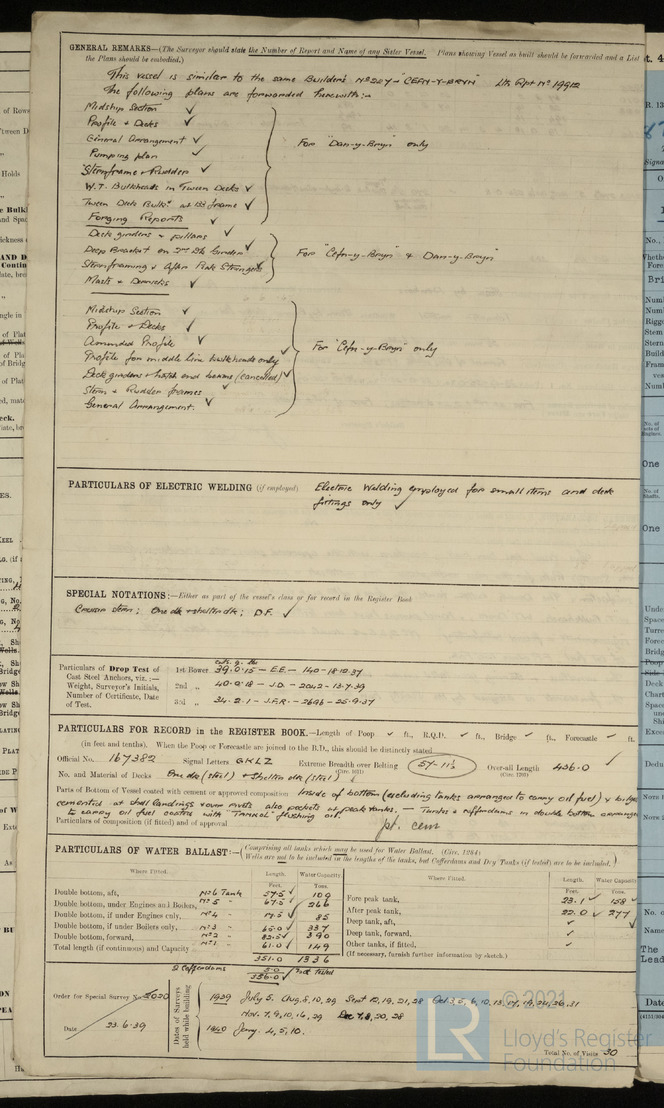 GENERAL REMARKS—(The Surveyor should state the Number of Report and Name of any Sister Vessel. Plans showing Vessel as built should be forwarded and a List
the Plans should be embodied.)
This vessel is similar to the same Builder's No 287 - "CEFN-Y-BRYN" Lth. Rpt No 19912
The following plans are forwarded herewith:-
Midship Section ✓
Profile & Decks ✓
General Arrangement ✓
For "Dan-y-Bryn" only
Pumping plan ✓
Sternframe & Rudder ✓
W.T. Bulkheads in Tween Decks ✓
Tween Deck Bulkd at 133 frame ✓
Forging Reports ✓
Deck girders & pillars ✓
Deep Bracket on 2nd Dk Girder ✓
For "Cefn-y-Bryn" & Dan-y-Bryn"
Sternframing & After Peak Stringers ✓
Masts & Derricks ✓
Midship Section ✓
Profile & Decks ✓
Amended Profile ✓
For "Cefn-y-Bryn" only
Profile for middle line bulkheads only ✓
Deck girders & hatch end beams (cancelled) ✓
Stern & Rudder frames ✓
General Arrangement. ✓
PARTICULARS OF ELECTRIC WELDING (if employed) Electric Welding employed for small items and deck
fittings only ✓
SPECIAL NOTATIONS:—Either as part of the vessel's class or for record in the Register Book
Cruiser stern; One dk & shelter dk; D.F. ✓
Particulars of Drop Test of
Cast Steel Anchors, viz. :—
Weight, Surveyor's Initials,
Number of Certificate, Date
of Test.
cwts. q. lbs
1st Bower 39.0.15 — E.E. — 140 — 18.10.37
2nd „ 40.0.18 — J.D. — 2042 — 13.7.39
3rd „ 34.2.1 — J.F.R. — 2696 — 25.9.37
PARTICULARS FOR RECORD in the REGISTER BOOK.—Length of Poop ✓ ft., R.Q.D. ✓ ft., Bridge ✓ ft., Forecastle ✓ ft.
(in feet and tenths). When the Poop or Forecastle are joined to the B.D., this should be distinctly stated
Official No. 167382 Signal Letters GKLZ Extreme Breadth over Belting 57-11½ Over-all Length 436.0 ✓
(Circ. 1611) (Circ. 1269)
No. and Material of Decks One dk (steel) & Shelter dk (steel) ✓
Parts of Bottom of Vessel coated with cement or approved composition Inside of bottom (excluding tanks arranged to carry oil fuel) & bilges
cemented at shell landings & over rivets also pockets at peak tanks. — Tanks & cofferdams in double bottom arranged
to carry oil fuel coated with "TANKOL" flushing oil.
Particulars of composition (if fitted) and of approval
pt. cem
PARTICULARS OF WATER BALLAST:—(Comprising all tanks which may be used for Water Ballast. (Circ. 1284)
Wells are not to be included in the lengths of the tanks, but Cofferdams and Dry Tanks (if tested) are to be included.)
Where Fitted. Length. Water Capacity. Where Fitted. Length. Water Capacity
Feet. Tons. Feet. Tons.
Double bottom, aft, No 6 Tank 57.5 ✓ 109
Double bottom, under Engines and Boilers, No 5 „ 67.5 ✓ 266
Double bottom, if under Engines only, No 4 „ 17.5 ✓ 85
Double bottom, if under Boilers only, No 3 „ 65.0 ✓ 337
Double bottom, forward, No 2 „ 82.5 ✓ 390
Total length (if continuous) and Capacity No 1 „ 61.0 ✓ 149
351.0 1336
2 Cofferdams 5.0
356.0 ✓ not tested
Fore peak tank, 23.1 ✓ 158 ✓
After peak tank, 22.0 ✓ 277 ✓
Deep tank, aft, ✓
Deep tank, forward, ✓
Other tanks, if fitted, ✓
(If necessary, furnish further information by sketch.)
Order for Special Survey No. 5020
Date 23.6.39
Dates of Surveys held while building
1939 July 5. Aug. 8, 10, 29 Sept 12, 19, 21, 28 Oct 3, 5, 6, 10, 13, 17, 19, 24, 26, 31
Nov. 7, 9, 10, 16, 29 Dec 7, 8, 20, 28
1940 Jany. 4, 5, 10.
Total No. of Visits 30
© 2021
LR
Lloyd's Register
Foundation